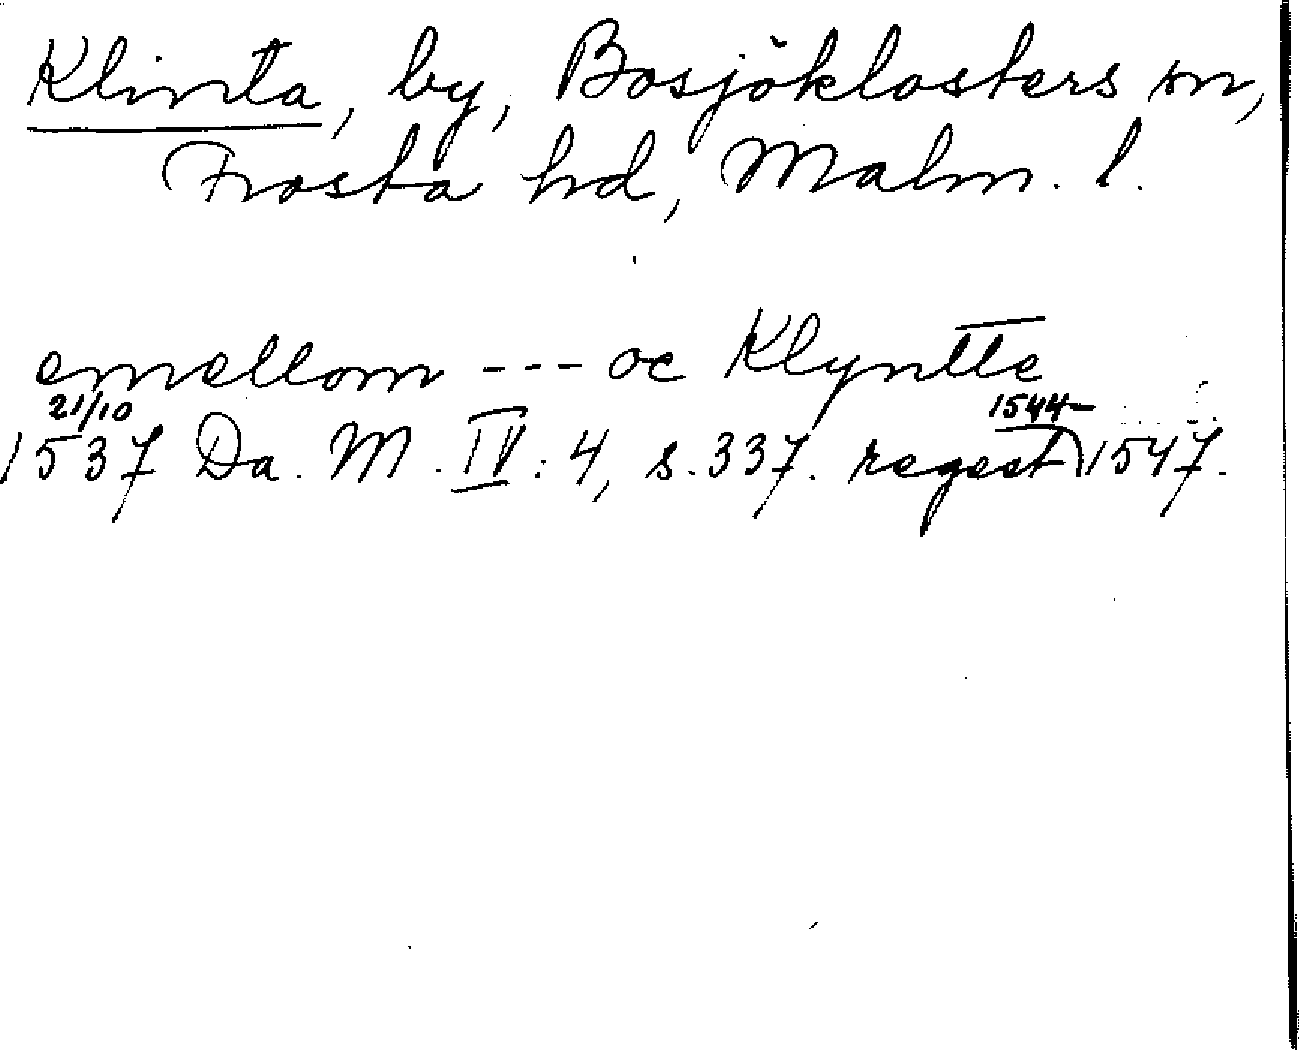 Klinta, by, Bosjöklosters sn,
Frosta hd, Malm. l.
emellom --- oc Klyntte
21/10 1544-
1537 Da. M. IV: 4, s. 337. regest 1547.